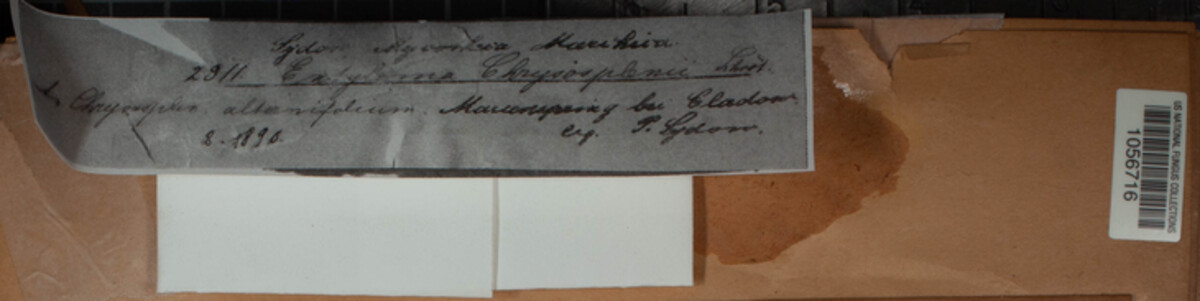 Sydow Mycotheca Marchica
2911 Entyloma Chrysosplenii Schröt.
Chrysosplen. alternifolium. bei Cladow
8. 1890. leg. P. Sydow.
US NATIONAL FUNGUS COLLECTIONS
1056716